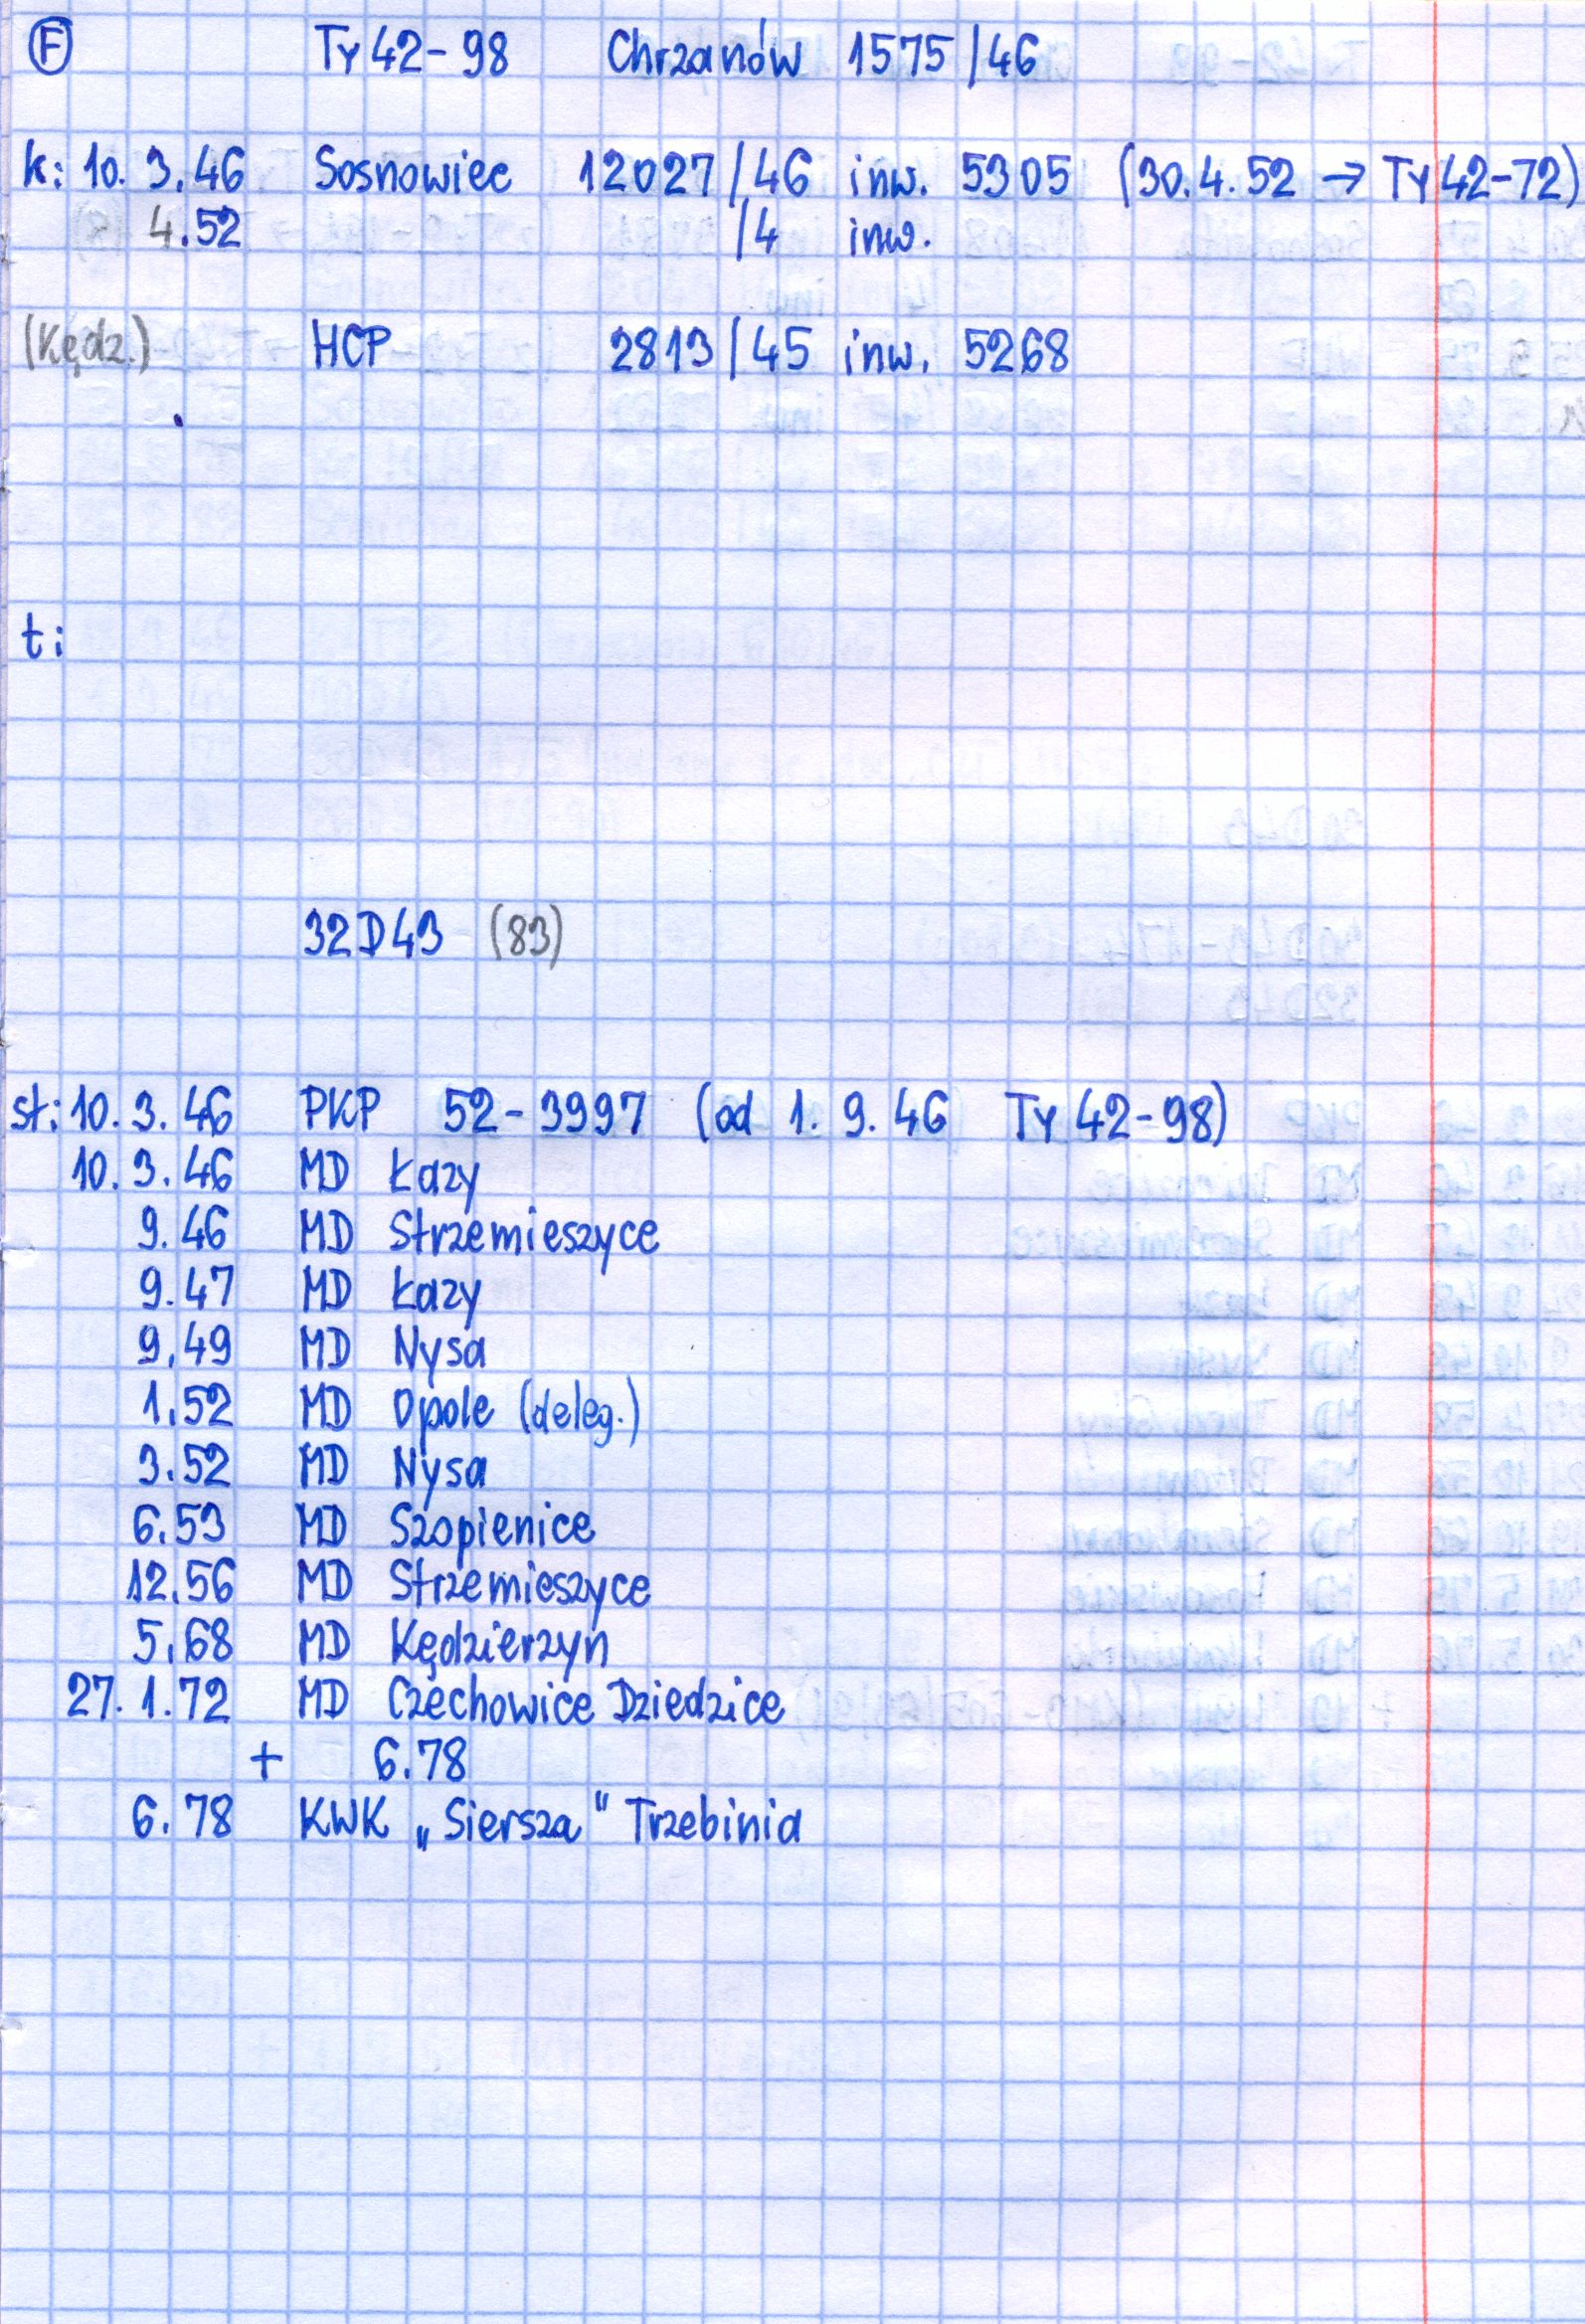 F Ty 42-98 Chrzanów 1575/46
k: 10. 3. 46 Sosnowiec 12027/46 inw. 5305 (30. 4. 52 → Ty 42-72)
4.52 /4 inw.
(Kędz.) HCP 2813/45 inw. 5268
t:
32D43 (83)
st: 10. 3. 46 PKP 52-3997 (od 1. 9. 46 Ty 42-98)
10. 3. 46 MD Łazy
9. 46 MD Strzemieszyce
9. 47 MD Łazy
9. 49 MD Nysa
1. 52 MD Opole (deleg.)
3. 52 MD Nysa
6. 53 MD Szopienice
12. 56 MD Strzemieszyce
5. 68 MD Kędzierzyn
27. 1. 72 MD Czechowice Dziedzice
+ 6.78
6. 78 KWK „Siersza" Trzebinia